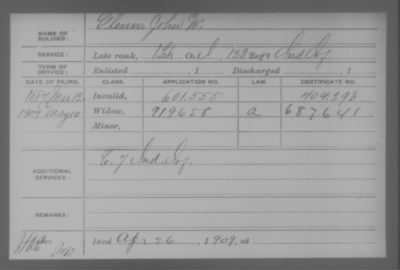 NAME OF SOLDIER: John W.
SERVICE: Late rank, Co. I, 128 Reg't Ind Inf
TERM OF SERVICE: Enlisted , 1 Discharged , 1
DATE OF FILING. CLASS. APPLICATION NO. LAW. CERTIFICATE NO.
Invalid, 601.555 404.293
1909 May 10 Widow, 919658 a 687641
Minor,
ADDITIONAL SERVICES: Ind Inf.
REMARKS:
Died Apr 26 , 1909, at